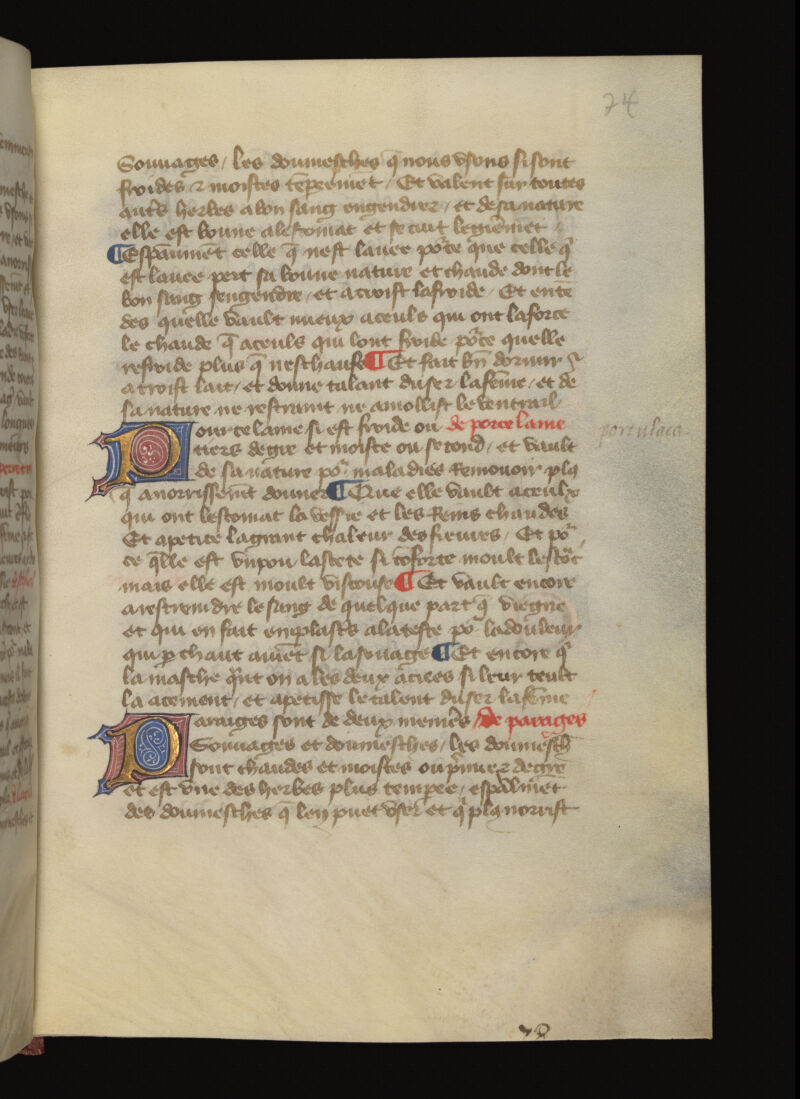 74
Sauuages / les doumesches q̄ nous vsons si sont
froides ⁊ moistes tēpreemēt / Et valent sur toutes
autꝭs herbes a bon sang engendrer / et de sa nature
elle est bonne a lestomat et se cuit legieremēt
¶ Espāaument celle q̄ nest lauee por̄ce que celle q̄
est lauee pert sa bonne nature et chaude dont le
bon sang sengendre / et acroist la froide / Et entē
des quelle vault mieux a ceuls qui ont la force
le chaude q̄ a ceuls qui lont froide por̄ce quelle
refroide plus q̄ neschaufe ¶ Et fait bn̄ dormir ⁊
acroist lait / et donne talant duser la fēme / et de
sa nature ne restraint ne amollist le ventrail
Pourcelaine si est froide ou de porcelaine
tiers degre et moiste ou second / et vault
de sa nature por̄ maladies Remouoir plꝯ
q̄ a norrissemēt donner ¶ Que elle vault a ceulx
qui ont lestomat la vessie et les Reins chaudes
Et apetice la grant chaleur des fieures / Et por̄
ce q̄lle est vn pou lastete si cōforte moult lestōc
mais elle est moult viscouse ¶ Et vault encore
a restraindre le sang de quelque part q̄ viegne
et qui en fait emplastꝭs a la teste por̄ la douleur
qui ꝑ chaut auiēt si lasouage ¶ Et encore q̄
la masche q̄nt on a les deux acices si leur teult
la acement / et apetisse le talent duser la fēme
Paraiges sont de deux meniers / de parages
Sauuages et doumesches / les doumesch̄
sont chaudes et moistes ou p̄mier degre
et est vne des herbes plus tempree / espālmēt
des doumesches q̄ len puet vser et q̄ plꝯ norrist
portulaca